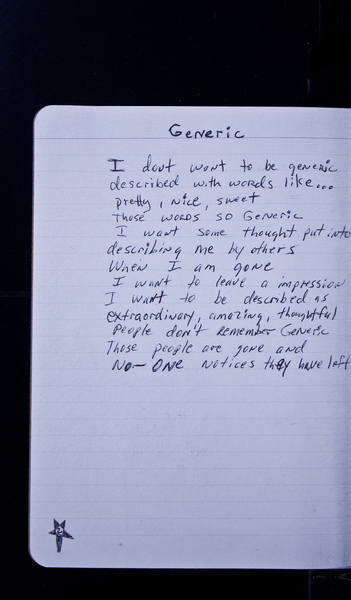 Generic
I dont want to be generic
described with words like...
pretty, nice, sweet
Those words so Generic
I want some thought put into
describing me by others
When I am gone
I want to leave a impression
I want to be described as
extraordinary, amazing, thoughtful
People don't remember Generic
Those people are gone and
No-One notices they have left